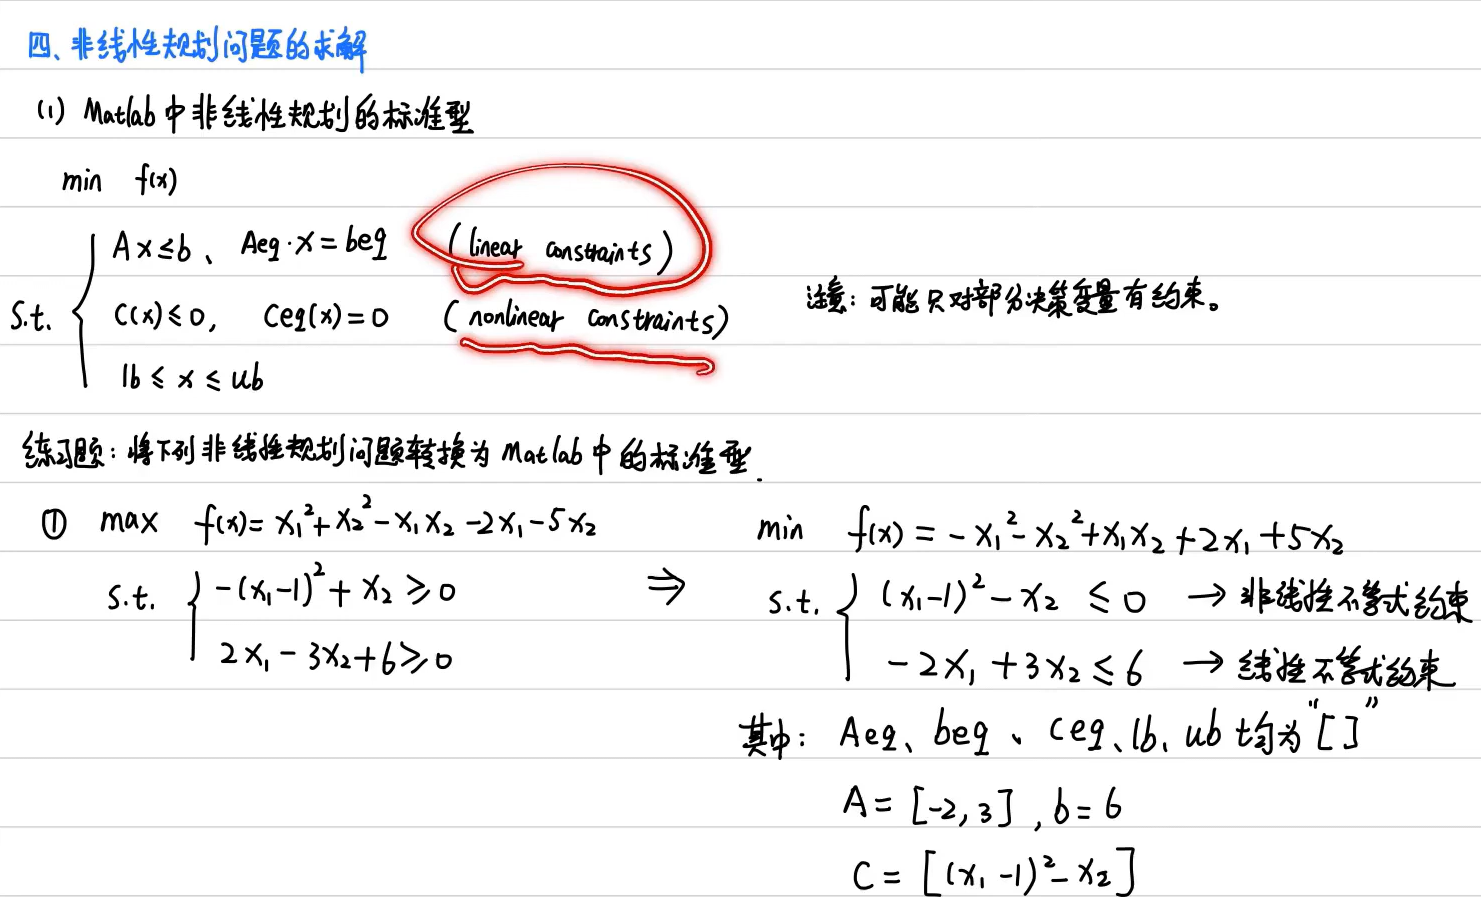 四、非线性规划问题的求解
(1) Matlab中非线性规划的标准型
min f(x)
s.t. { Ax≤b、Aeq·x=beq (linear constraints)
C(x)≤0, Ceq(x)=0 (nonlinear constraints)
lb≤x≤ub
注意：可能只对部分决策变量有约束。
练习题：将下列非线性规划问题转换为Matlab中的标准型.
① max f(x)=x₁²+x₂²-x₁x₂-2x₁-5x₂
s.t. { -(x₁-1)²+x₂≥0
2x₁-3x₂+6≥0
⇒
min f(x)=-x₁²-x₂²+x₁x₂+2x₁+5x₂
s.t. { (x₁-1)²-x₂≤0 → 非线性不等式约束
-2x₁+3x₂≤6 → 线性不等式约束
其中：Aeq、beq、ceq、lb、ub均为"[]"
A=[-2,3],b=6
C=[(x₁-1)²-x₂]